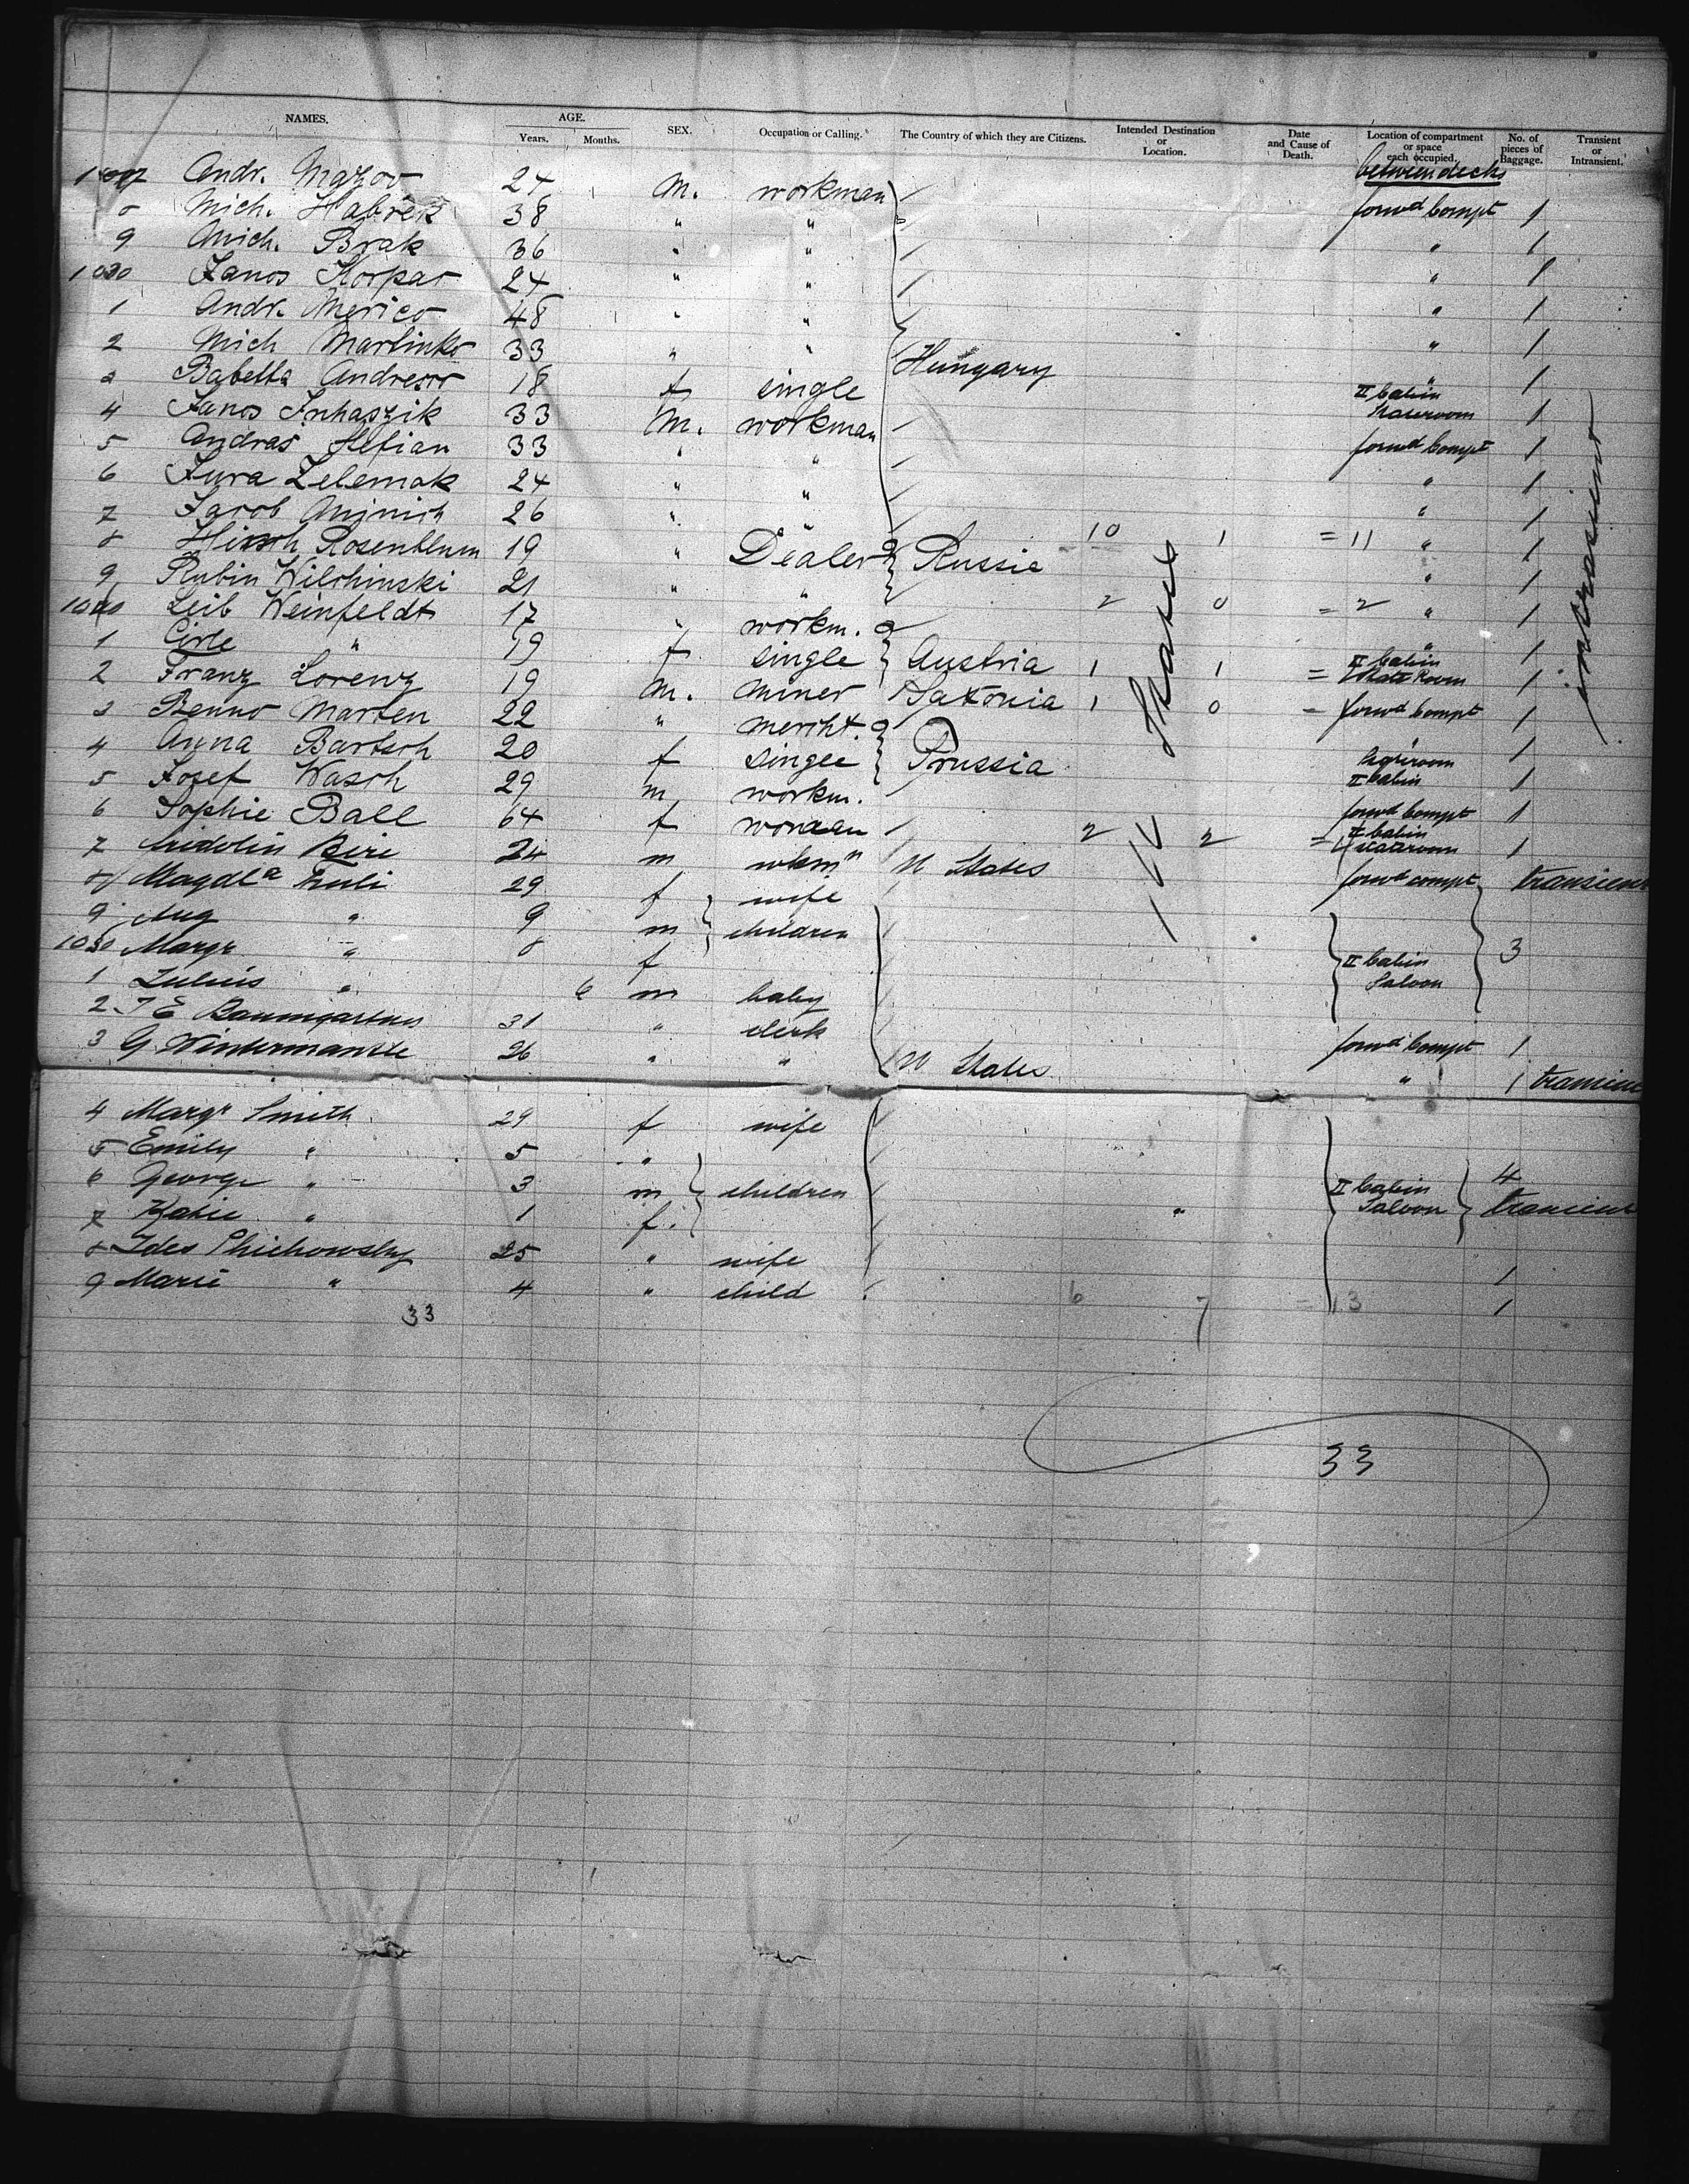 NAMES. AGE. Years. Months. SEX. Occupation or Calling. The Country of which they are Citizens. Intended Destination or Location. Date and Cause of Death. Location of compartment or space each occupied. No. of pieces of Baggage. Transient or Intransient.
betweendecks
Andr. Mazov 24 M. workman
8 Mich. Habrek 38 " " forwd Compt 1
9 Mich. Brak 36 " " " 1
1030 Janos Korpas 24 " " " 1
1 Andr. Merico 48 " " " 1
2 Mich Martinko 33 " " " 1
Hungary
3 Babetta 18 f single II Cabin Stateroom 1
4 Janos Juhaszik 33 M. workman 1
5 Andras Hefian 33 " " forwd Compt 1
6 Jura Zelemak 24 " " " 1
7 Jacob 26 " " " 1
8 Hirsch Rosenblum 19 " Dealer Russia 10 1 = 11 " 1
9 Rubin Wilchinski 21 " " " 1
1040 Leib Weinfeldt 17 " workm. 2 0 = 2 " 1
1 Cirle " 19 f single Austria 1 1 = II Cabin State Room 1
2 Franz Lorenz 19 M. miner Saxonia 1 0 - forwd Compt 1
3 Benno Marten 22 " mercht. 1
4 Anna Bartsch 20 f single Prussia II Cabin 1
5 Josef Wasch 29 m workm. forwd Compt 1
6 Sophie Ball 64 f woman 2 2 = 4 II Cabin Stateroom 1
7 Fridolin Biri 24 m wkmn U States forwd compt transient
8 Magdla 29 f wife
9 Aug " 9 m children
1050 Margr " 8 f II Cabin Saloon 3
1 Julius " 6 m baby
2 J E Baumgartner 31 " clerk forwd Compt 1
3 G Wintermantle 26 " " U States " 1 transient
4 Margr Smith 29 f wife
5 Emily " 5 "
6 George " 3 m children II Cabin Saloon 4 transient
7 Katie " 1 f.
8 Ides 25 " wife 1
9 Marie " 4 " child 6 7 = 13 1
33
33
States
intransient